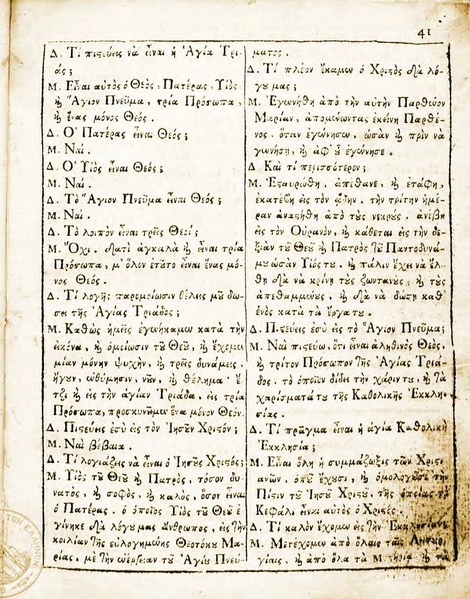 41
Δ. Τί πιστεύεις νὰ εἶναι ἡ Ἁγία Τρι-
άς;
Μ. Εἶναι αὐτὸς ὁ Θεὸς, Πατέρας, Υἱὸς
ϗ Ἅγιον Πνεῦμα, τρία Πρόσωπα,
ϗ ἕνας μόνος Θεός.
Δ. Ὁ Πατέρας εἶναι Θεός;
Μ. Ναί.
Δ. Ὁ Υἱὸς εἶναι Θεός;
Μ. Ναί.
Δ. Τὸ Ἅγιον Πνεῦμα εἶναι Θεός;
Μ. Ναί.
Δ. Τὸ λοιπὸν εἶναι τρεῖς Θεοί;
Μ. Ὄχι. Διατὶ ἀγκαλὰ ϗ εἶναι τρία
Πρόσωπα, μ' ὅλον ἐτȣτο εἶναι ἕνας μό-
νος Θεός.
Δ. Τί λογῆς παρομοίωσιν θέλεις μȣ δώ-
σει τῆς Ἁγίας Τριάδος;
Μ. Καθὼς ἡμεῖς ἐγινήκαμεν κατὰ τὴν
εἰκόνα, ϗ ὁμοίωσιν τȣ Θεȣ, ϗ ἔχομεν
μίαν μόνην ψυχὴν, ϗ τρεῖς δυνάμεις,
ἤγȣν, ἐνθύμησιν, νȣν, ϗ θέλημα· ἔ-
τζι ϗ εἰς τὴν ἁγίαν Τριάδα, εἰς τρία
Πρόσωπα, προσκυνȣμεν ἕνα μόνον Θεόν.
Δ. Πιστεύεις ἐσὺ εἰς τὸν Ἰησȣν Χριστόν;
Μ. Ναὶ βέβαια.
Δ. Τί λογιάζεις νὰ εἶναι ὁ Ἰησȣς Χριστός;
Μ. Υἱὸς τȣ Θεȣ ϗ Πατρὸς, τόσον δυ-
νατὸς, ϗ σοφὸς, ϗ καλὸς, ὅσον εἶναι
ὁ Πατέρας. ὁ ὁποῖος Υἱὸς τȣ Θεȣ ἐ-
γίνηκε διὰ λόγȣ μας ἄνθρωπος, εἰς τὴν
κοιλίαν τῆς εὐλογημένης Θεοτόκȣ Μα-
ρίας, μὲ τὴν ἐνέργειαν τȣ Ἁγίȣ Πνεύ-
ματος.
Δ. Τί πλέον ἔκαμεν ὁ Χριστὸς διὰ λό-
γȣ μας;
Μ. Ἐγεννήθη ἀπὸ τὴν αὐτὴν Παρθένον
Μαρίαν, ἀπομένωντας ἐκείνη Παρθέ-
νος, ὅταν ἐγέννησεν, ὡσὰν ϗ πρὶν νὰ
γεννήσῃ, ϗ ἀφ' ȣ ἐγέννησε.
Δ. Καὶ τί περισσότερον;
Μ. Ἐσταυρώθη, ἀπέθανε, ϗ ἐτάφη,
ἐκατέβη εἰς τὸν ᾅδην, τὴν τρίτην ἡμέ-
ραν ἀναστήθη ἀπὸ τȣς νεκρȣς, ἀνέβη
εἰς τὸν Οὐρανὸν, ϗ κάθεται εἰς τὴν δε-
ξιὰν τȣ Θεȣ ϗ Πατρὸς τȣ Παντοδυνά-
μȣ ὡσὰν Υἱός τȣ, ϗ πάλιν ἔχει νὰ ἔλ-
θῃ διὰ νὰ κρίνῃ τȣς ζωντανȣς, ϗ τȣς
ἀπεθαμμένȣς, ϗ διὰ νὰ δώσῃ καθ'
ἑνὸς κατὰ τὰ ἔργα τȣ.
Δ. Πιστεύεις ἐσὺ εἰς τὸ Ἅγιον Πνεῦμα;
Μ. Ναὶ πιστεύω, ὅτι εἶναι ἀληθινὸς Θεὸς,
ϗ τρίτον Πρόσωπον τῆς Ἁγίας Τριά-
δος, τὸ ὁποῖον δίδει τὴν χάριν τȣ, ϗ τὰ
χαρίσματά τȣ τῆς Καθολικῆς Ἐκκλη-
σίας.
Δ. Τί πρᾶγμα εἶναι ἡ ἁγία Καθολικὴ
Ἐκκλησία;
Μ. Εἶναι ὅλη ἡ συμμάζωξις τῶν Χριστι-
ανῶν, ὁπȣ ἔχȣσι, ϗ ὁμολογȣσι τὴν
Πίστιν τȣ Ἰησȣ Χριστȣ, τῆς ὁποίας ἡ
Κεφαλὴ εἶναι αὐτὸς ὁ Χριστός.
Δ. Τί καλὸν ἔχομεν εἰς τὴν Ἐκκλησίαν;
Μ. Μετέχομεν ἀπὸ ὅλαις ταῖς
γίαις, ϗ ἀπὸ ὅλα τὰ ϗ τὰ